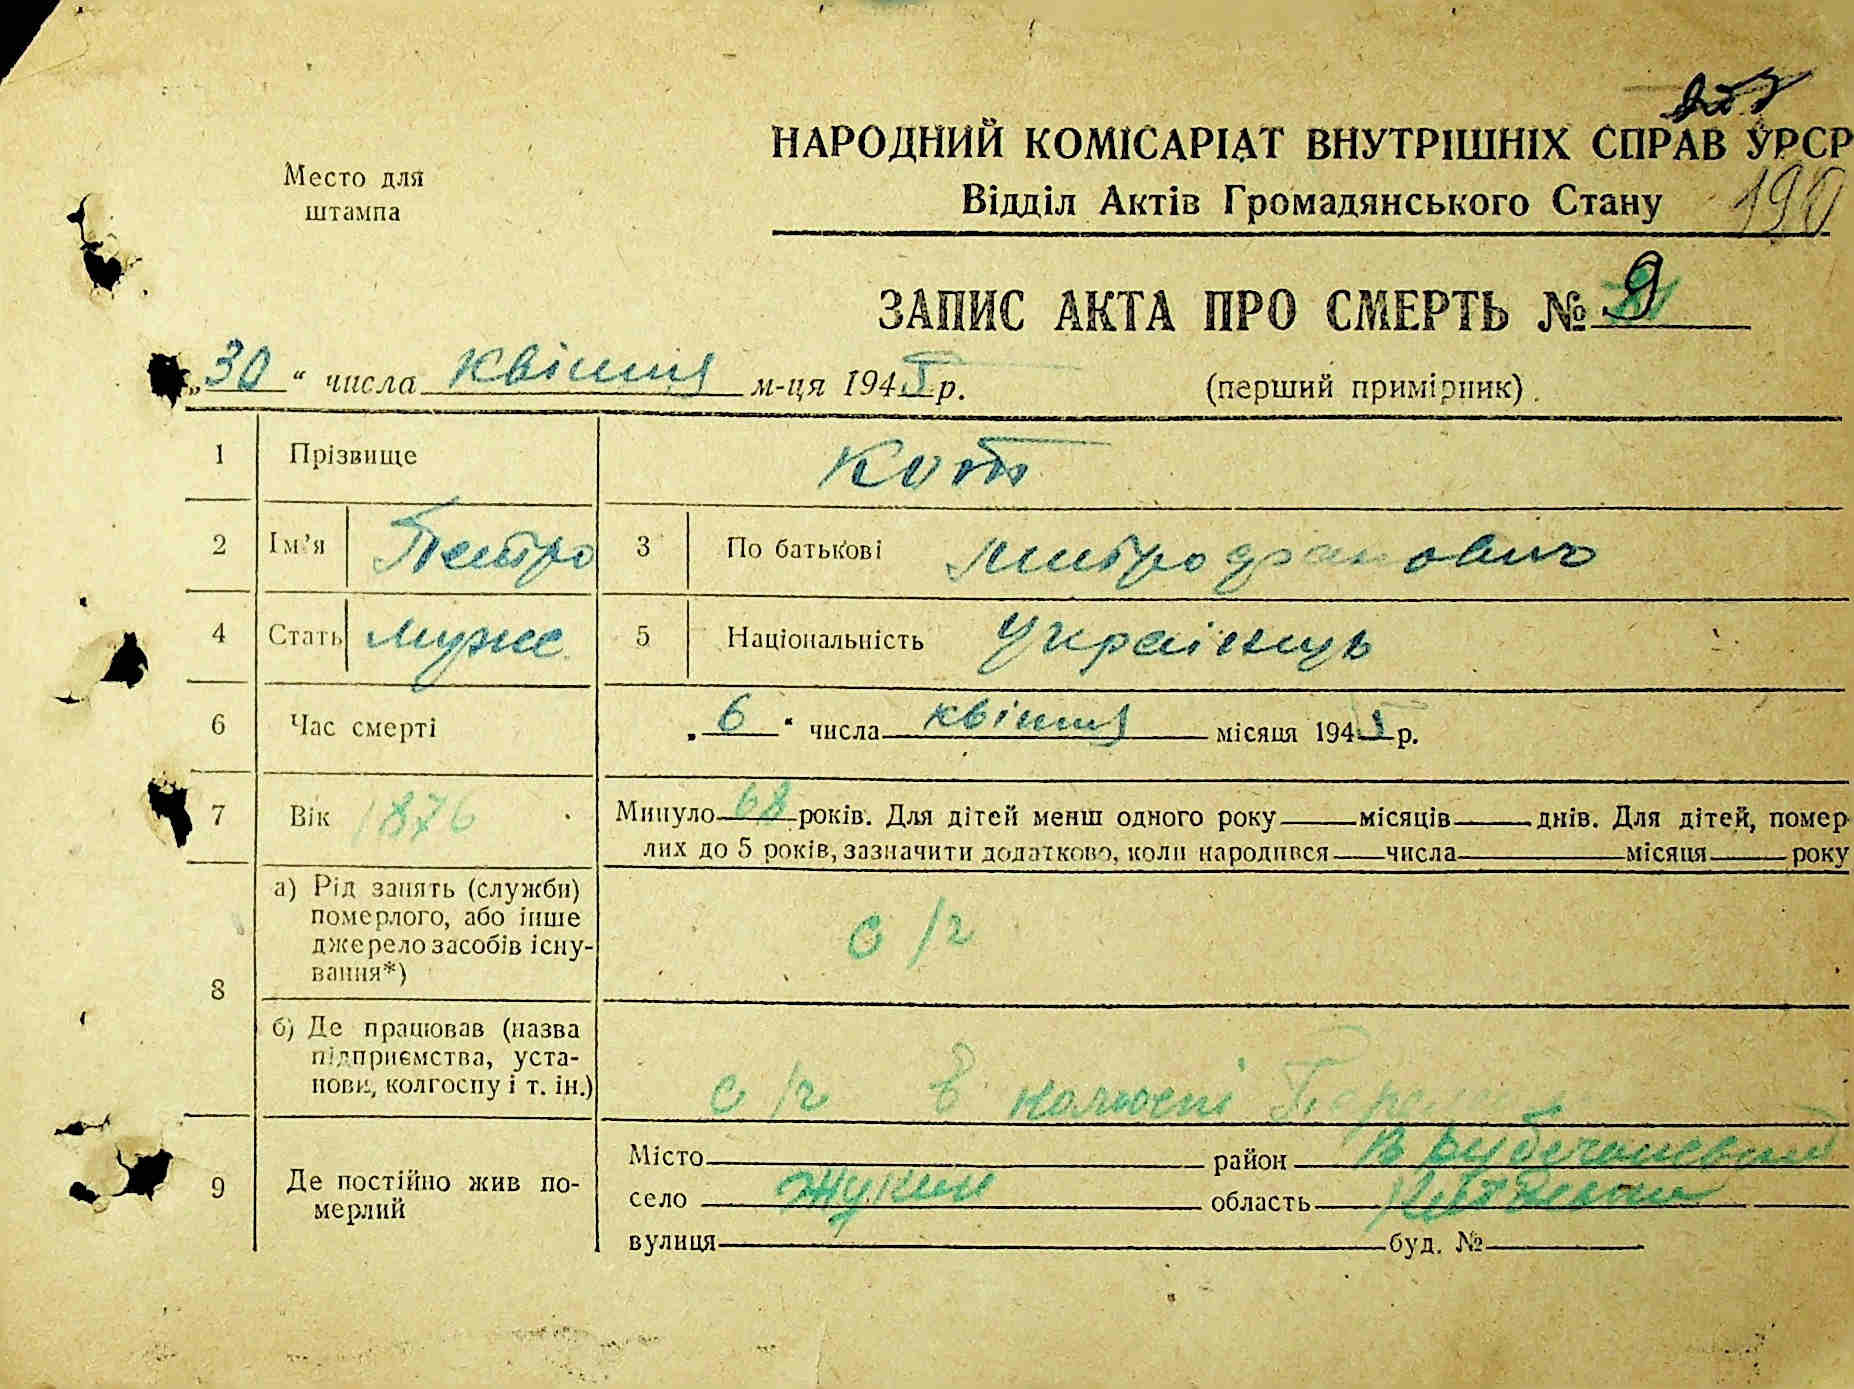 НАРОДНИЙ КОМІСАРІАТ ВНУТРІШНІХ СПРАВ УРСР
Место для штампа
Відділ Актів Громадянського Стану 190
ЗАПИС АКТА ПРО СМЕРТЬ № 9
„30“ числа квітня м-ця 1945 р. (перший примірник).
1 Прізвище Кот
2 Ім’я Петро 3 По батькові Митрофанович
4 Стать муже 5 Національність Українець
6 Час смерті „6“ числа квітня місяця 1945 р.
7 Вік 1876 Минуло 68 років. Для дітей менш одного року місяців днів. Для дітей, помер
лих до 5 років, зазначити додатково, коли народився числа місяця року
8 а) Рід занять (служби)
померлого, або інше
джерело засобів існу-
вання*) с/г
б) Де працював (назва
підприємства, уста-
нови, колгоспу і т. ін.) с/г в колгоспі
9 Де постійно жив по-
мерлий
Місто район
село Жукин область
вулиця буд. №